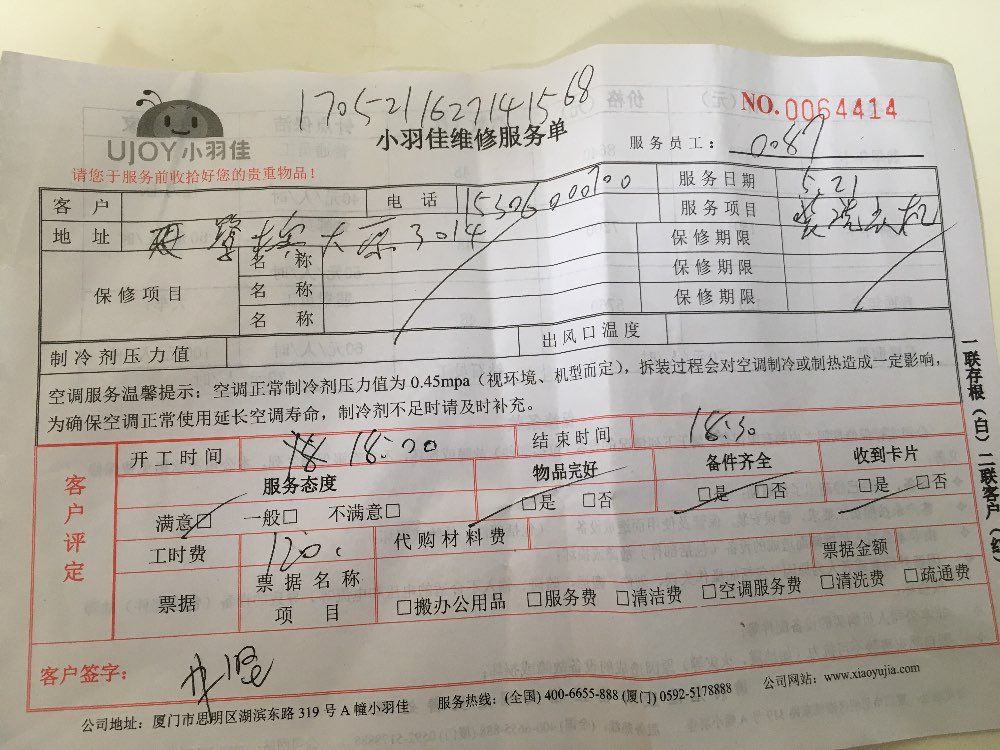 1705211627141568
NO.0064414
UJOY小羽佳
小羽佳维修服务单
服务员工：0087
请您于服务前收拾好您的贵重物品！
客户 电话 15306000700 服务日期 5.21
地址 大厦3014 服务项目 洗衣机
保修项目 名称 保修期限
名称 保修期限
名称 保修期限
制冷剂压力值 出风口温度
空调服务温馨提示：空调正常制冷剂压力值为 0.45mpa（视环境、机型而定），拆装过程会对空调制冷或制热造成一定影响，
为确保空调正常使用延长空调寿命，制冷剂不足时请及时补充。
客户评定
开工时间 18:00 结束时间 18:30
服务态度 物品完好 备件齐全 收到卡片
满意□ 一般□ 不满意□ □是 □否 □是 □否 □是 □否
工时费 120 代购材料费
票据 票据名称 票据金额
项目 □搬办公用品 □服务费 □清洁费 □空调服务费 □清洗费 □疏通费
客户签字：
公司地址：厦门市思明区湖滨东路 319 号 A 幢小羽佳 服务热线：(全国) 400-6655-888 (厦门) 0592-5178888 公司网站：www.xiaoyujia.com
一联存根（白）二联客户（红）